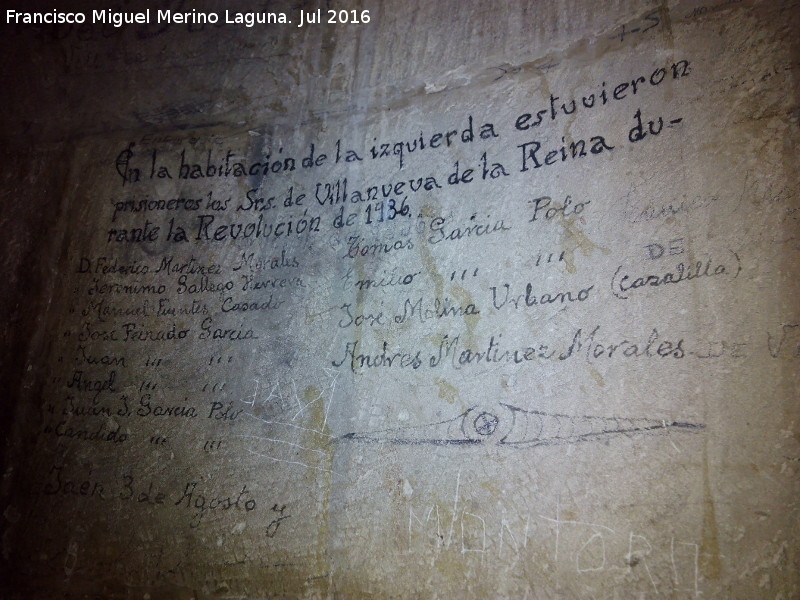 Francisco Miguel Merino Laguna. Jul 2016
En la habitación de la izquierda estuvieron
prisioneros los Srs. de Villanueva de la Reina du-
rante la Revolución de 1936.
D. Federico Martinez Morales
" Jeronimo Gallego Herrera
" Manuel Fuentes Casado
" Jose Peinado Garcia
" Juan ,,, ,,,
" Angel ,,, ,,,
" Juan J. Garcia Polo
" Candido ,,, ,,,
Tomas Garcia Polo
Emilio ,,, ,,,
José Molina Urbano (DE cazalilla)
Andres Martinez Morales DE V
Jaén 3 de Agosto y
MONTORO